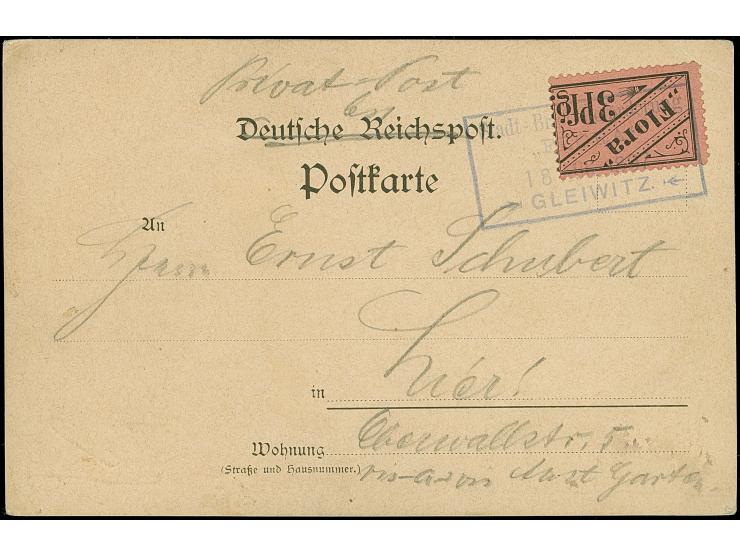 Privat-Post
Deutsche Reichspost.
Postkarte
"Flora"
3 Pfg.
GLEIWITZ
An
Herrn Ernst Schubert
Hier!
in
Wohnung Oberwallstr.
(Straße und Hausnummer.) vis-a-vis Garten